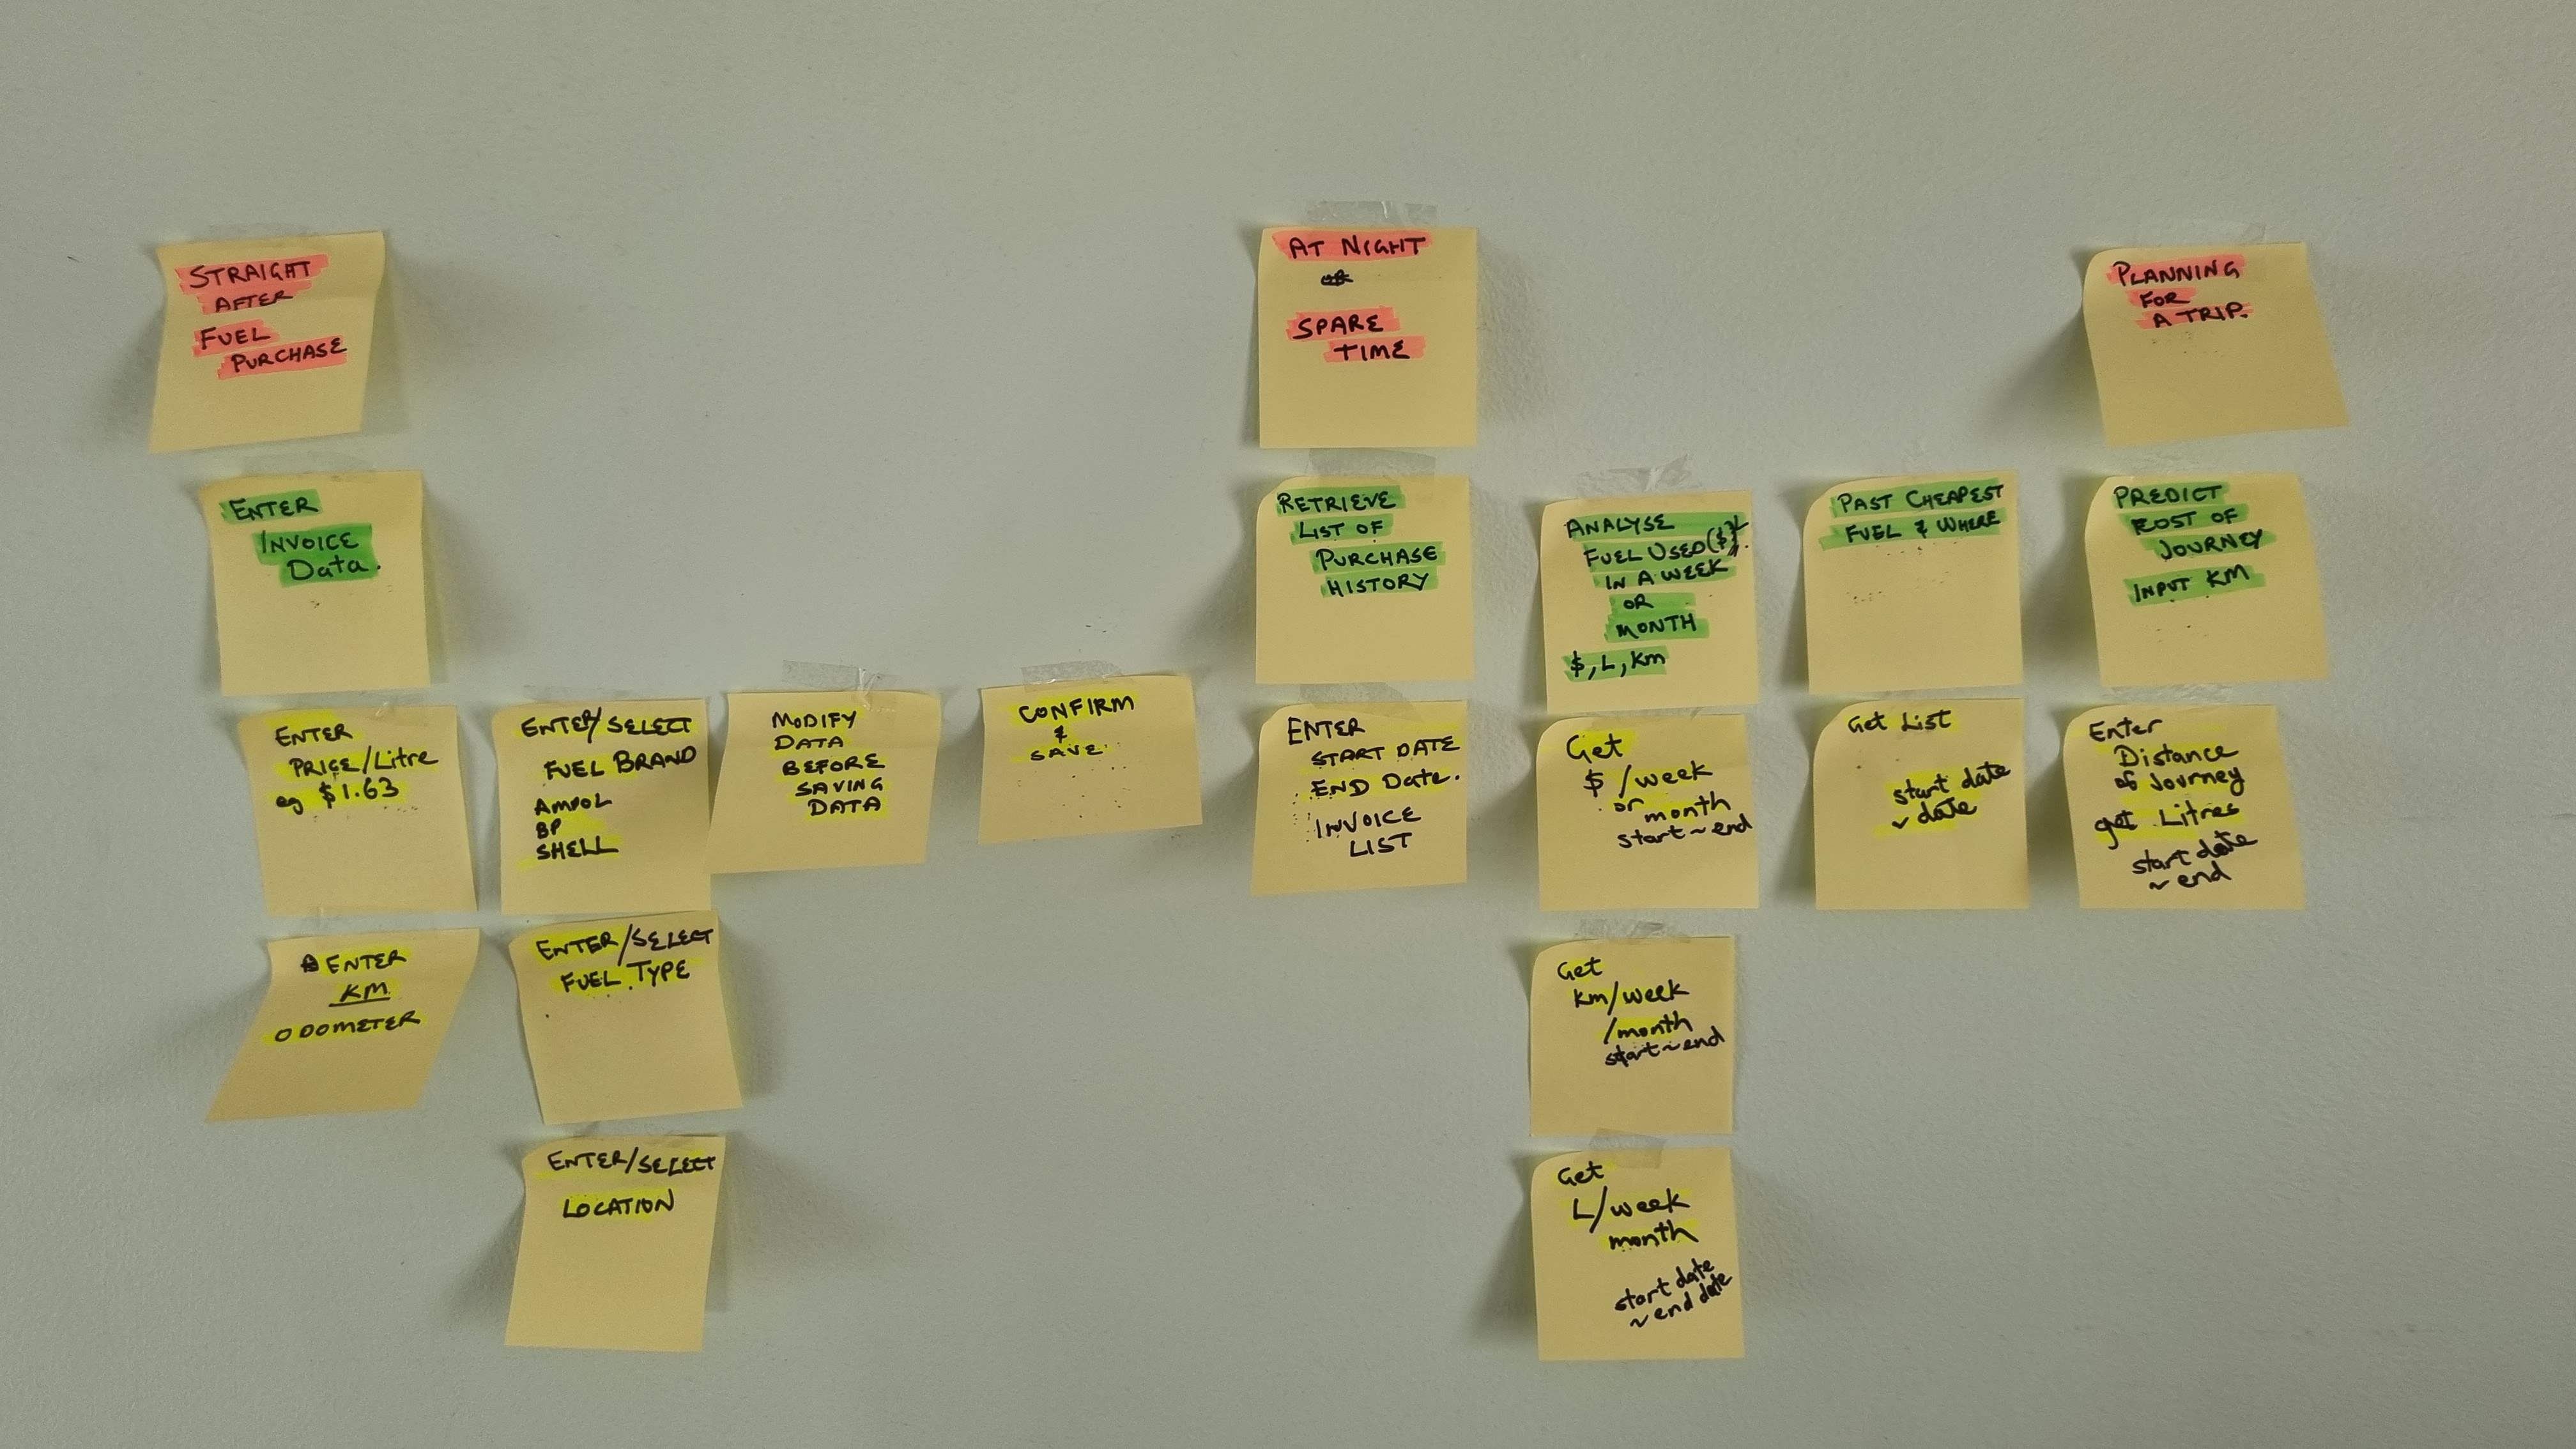 STRAIGHT
AFTER
FUEL
PURCHASE
AT NIGHT
OR
SPARE
TIME
PLANNING
FOR
A TRIP.
ENTER
INVOICE
Data.
RETRIEVE
LIST OF
PURCHASE
HISTORY
ANALYSE
FUEL USED ($)
IN A WEEK
OR
MONTH
$, L, Km
PAST CHEAPEST
FUEL & WHERE
PREDICT
COST OF
JOURNEY
INPUT KM
ENTER
PRICE/Litre
eg $1.63
ENTER/SELECT
FUEL BRAND
AMPOL
BP
SHELL
MODIFY
DATA
BEFORE
SAVING
DATA
CONFIRM
&
SAVE
ENTER
START DATE
END Date.
INVOICE
LIST
Get
$/week
or month
start ~ end
Get List
start date
~ date
Enter
Distance
of Journey
get Litres
start date
~ end
ENTER
KM
ODOMETER
ENTER/SELECT
FUEL TYPE
Get
km/week
/month
start ~ end
ENTER/SELECT
LOCATION
Get
L/week
month
start date
~ end date